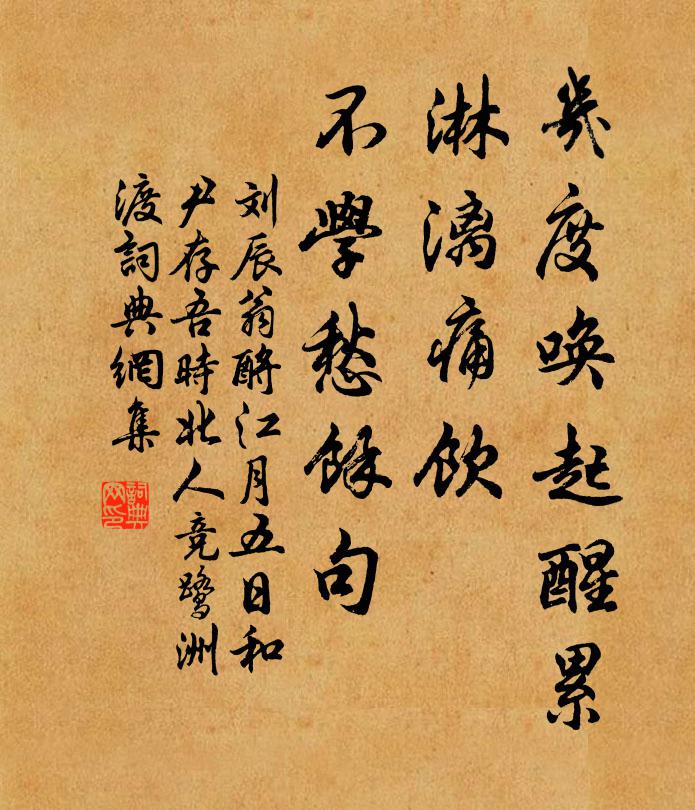 幾度唤起醒累
淋漓痛飲
不學愁餘句
刘辰翁酹江月五日和
尹存吾時北人竞鹭洲
渡詞典網集
詞典
网印